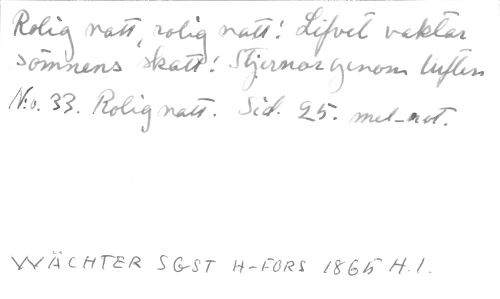 Rolig natt, rolig natt! Lifvet vaktar
sömnens skatt! Stjernor genom luften
N:o. 33. Rolig natt. Sid. 25. mel-not.
WÄCHTER SGST H-FORS 1865 H.1.